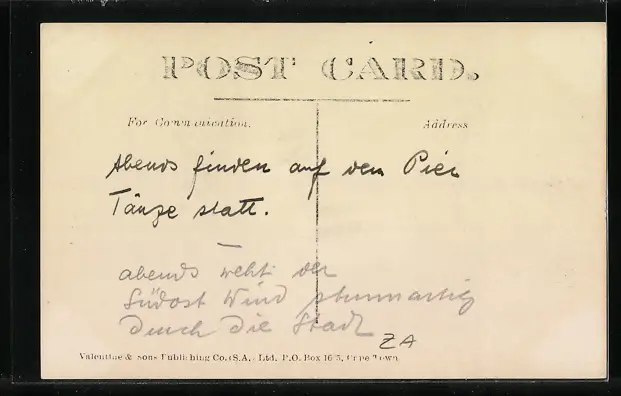 POST CARD.
For Communication.
Address
Abends finden auf dem Pier
Tänze statt.
abends weht der
Südost Wind sturmartig
durch die Stadt
ZA
Valentine & Sons Publishing Co. (S.A.) Ltd. P.O. Box 1685, Cape Town